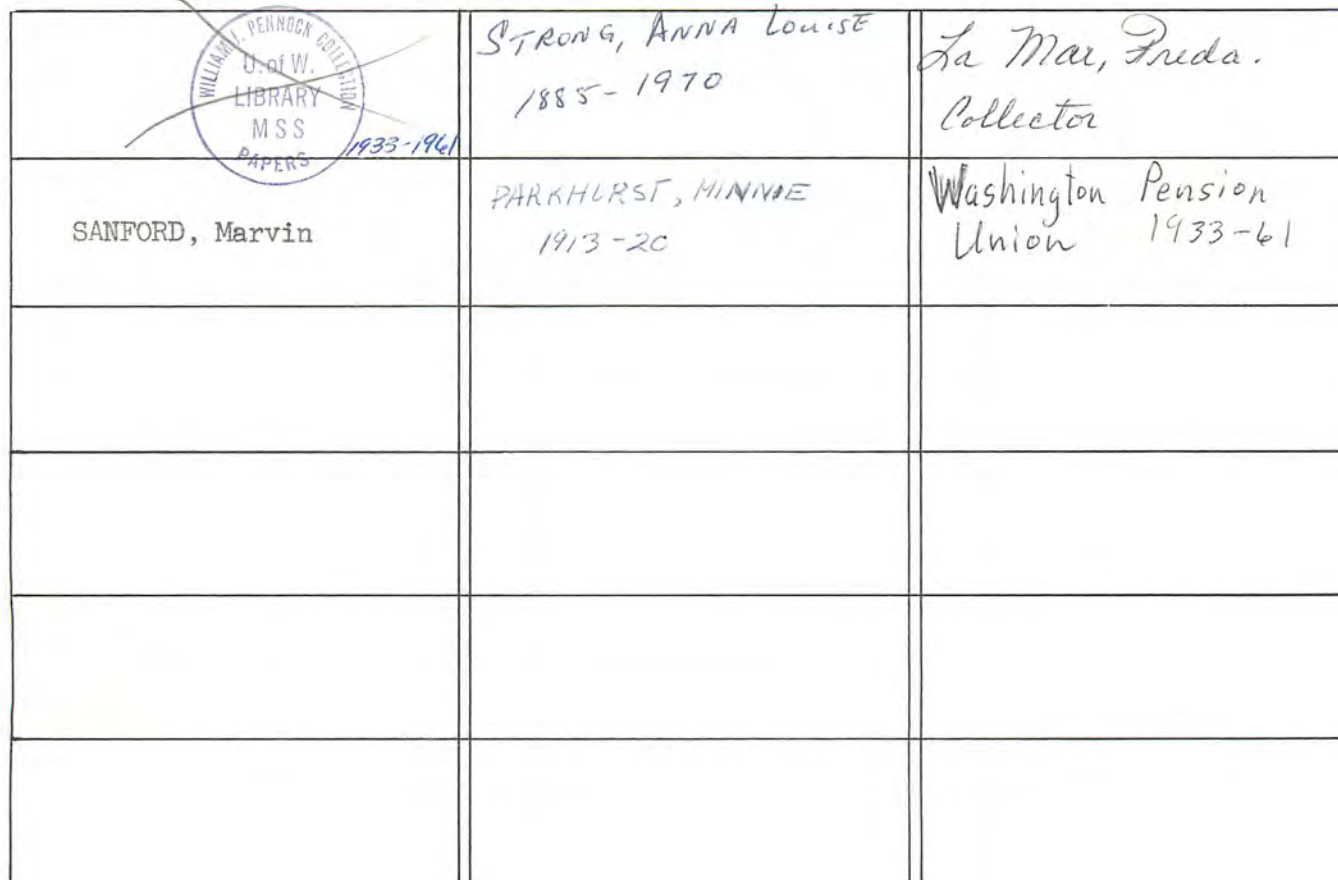 WILLIAM J. PENNOCK COLLECTION
U. of W.
LIBRARY
MSS
PAPERS
1933-1961
STRONG, ANNA LOUISE
1885-1970
La Mar, Freda.
Collector
SANFORD, Marvin
PARKHURST, MINNIE
1913-20
Washington Pension
Union 1933-61